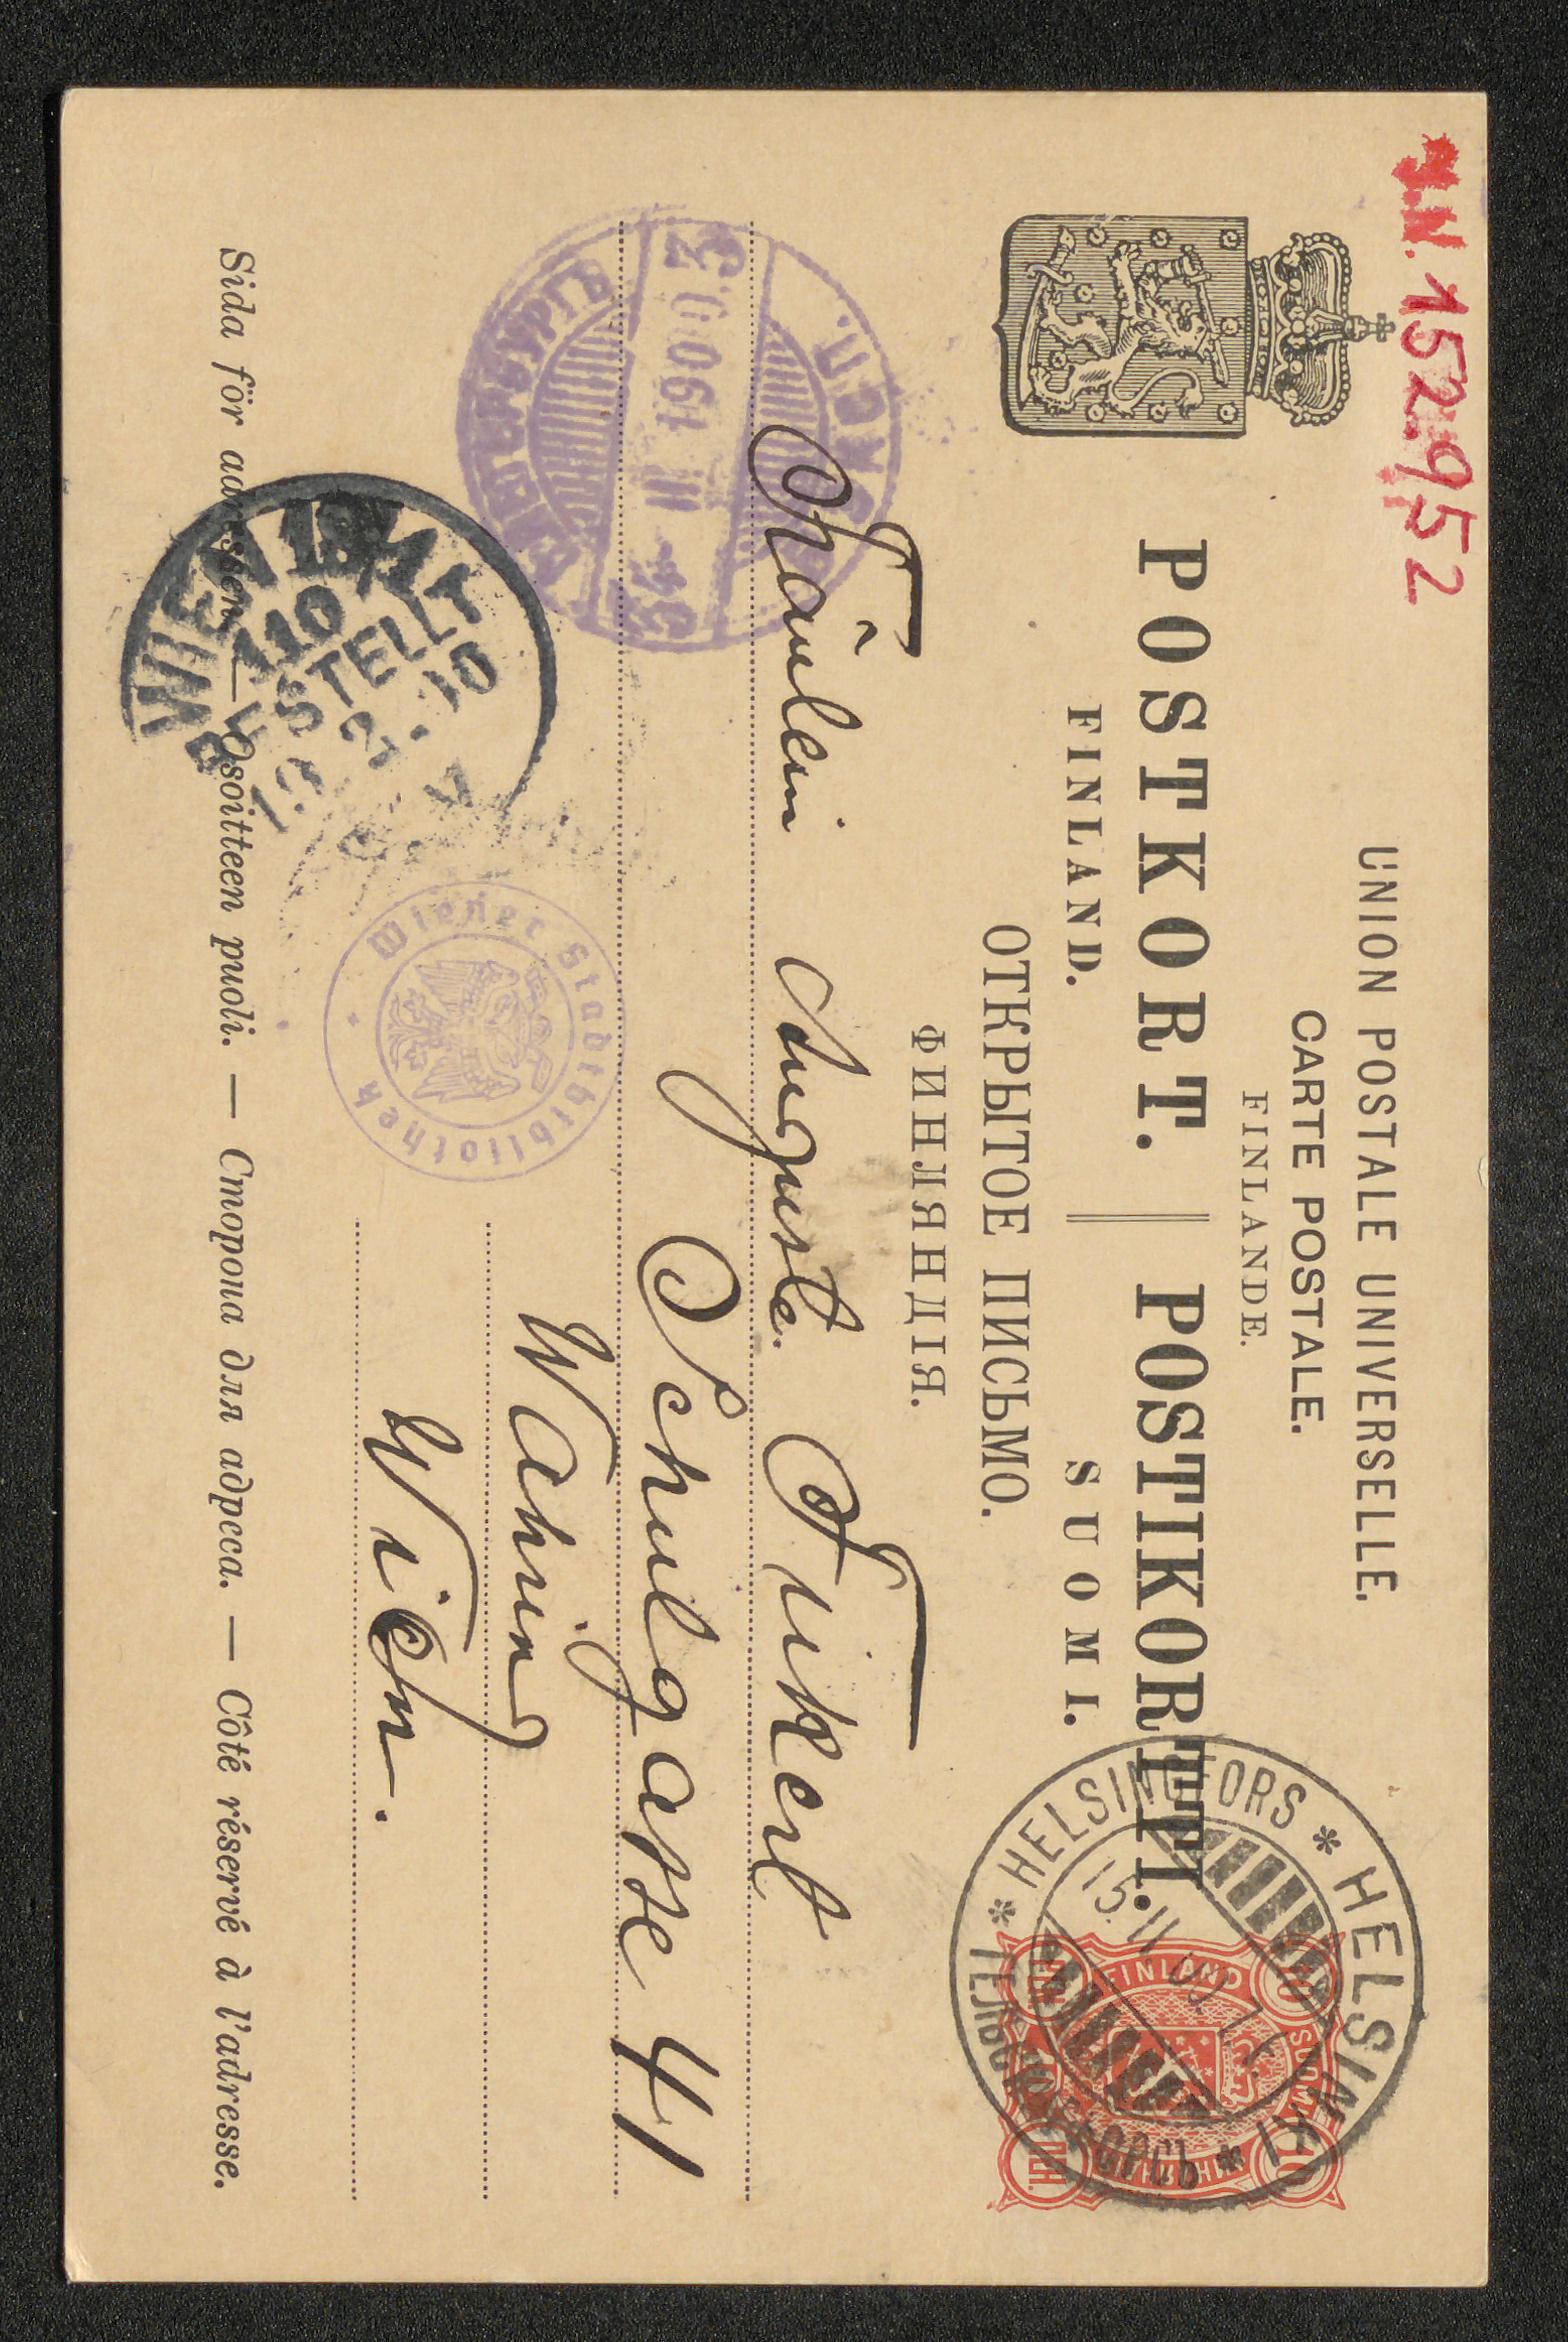 J.N. 152.952
UNION POSTALE UNIVERSELLE.
CARTE POSTALE.
FINLANDE.
POSTKORT. POSTIKORTTI.
FINLAND. SUOMI.
ОТКРЫТОЕ ПИСЬМО.
ФИНЛЯНДІЯ.
HELSINKI * HELSINGFORS *
15. II. 00
FINLAND
SUOMI
10
PEN
Fräulein Auguste Fikert
Schulgasse 41
Währing
Wien.
1900.3
WIEN 18/1
110
BESTELLT
Wiener Stadtbibliothek
Sida för adressen. — Osoitteen puoli. — Сторона для адреса. — Côté réservé à l'adresse.